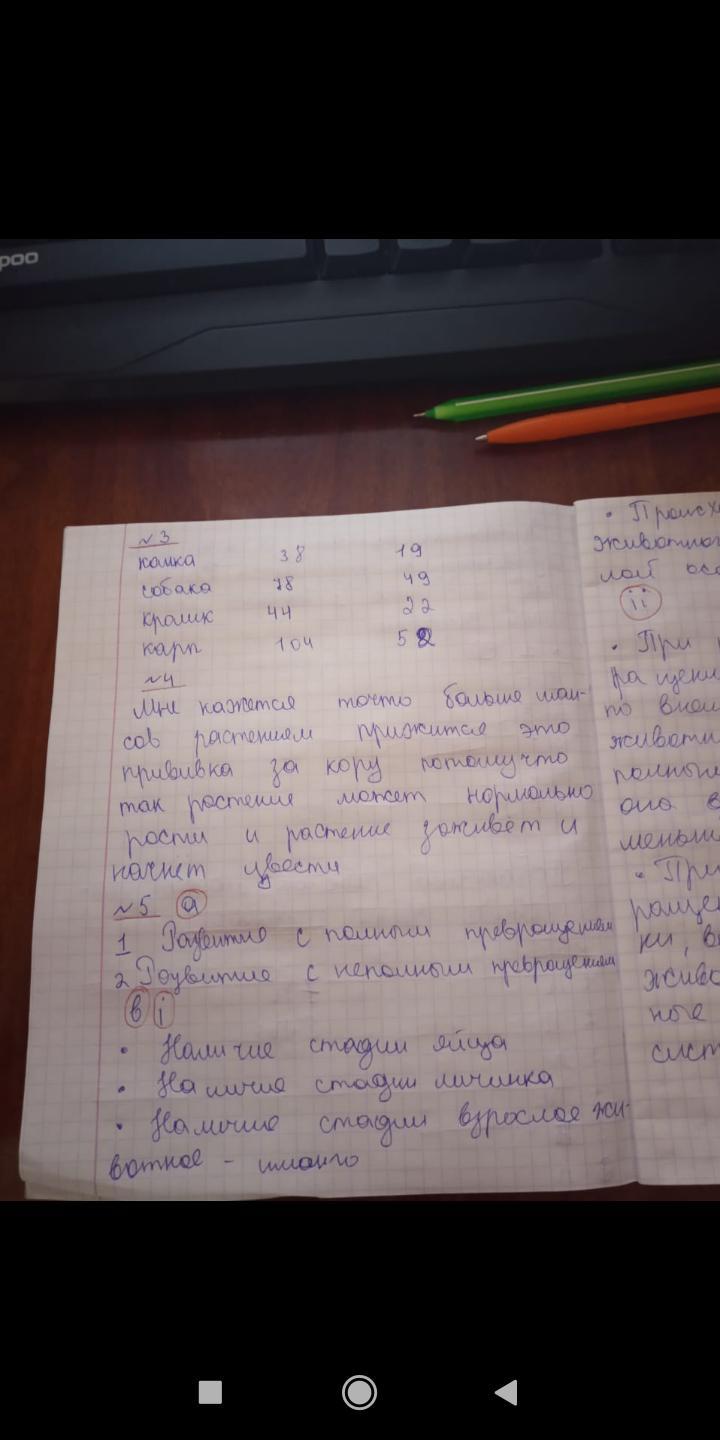 poo
№3
кошка 38 19
собака 78 49
кролик 44 22
карп 104 52
№4
Мне кажется точто больше шан-
сов растением прижится это
прививка за кору потомучто
так растение может нормально
рости и растение заживёт и
начнет цвести
№5 а
1 Развитие с полным превращением
2 Розвитие с неполным превращением
в i
• Наличие стадии яйца
• Наличие стадии личинка
• Наличие стадии взрослое жи-
вотное - имаго
• Происх
животног
лой осо
ii
• При
ращени
по внеш
животн
полным
она в
меньш
• При
ращен
ки, в
живо
ные
сист